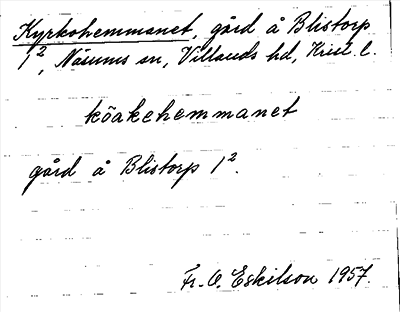 Kyrkohemmanet, gård å Blistorp
1², Näsums sn, Villands hd, Krist. l.
köakehemmanet
gård å Blistorp 1².
Fr. O. Eskilson 1957.